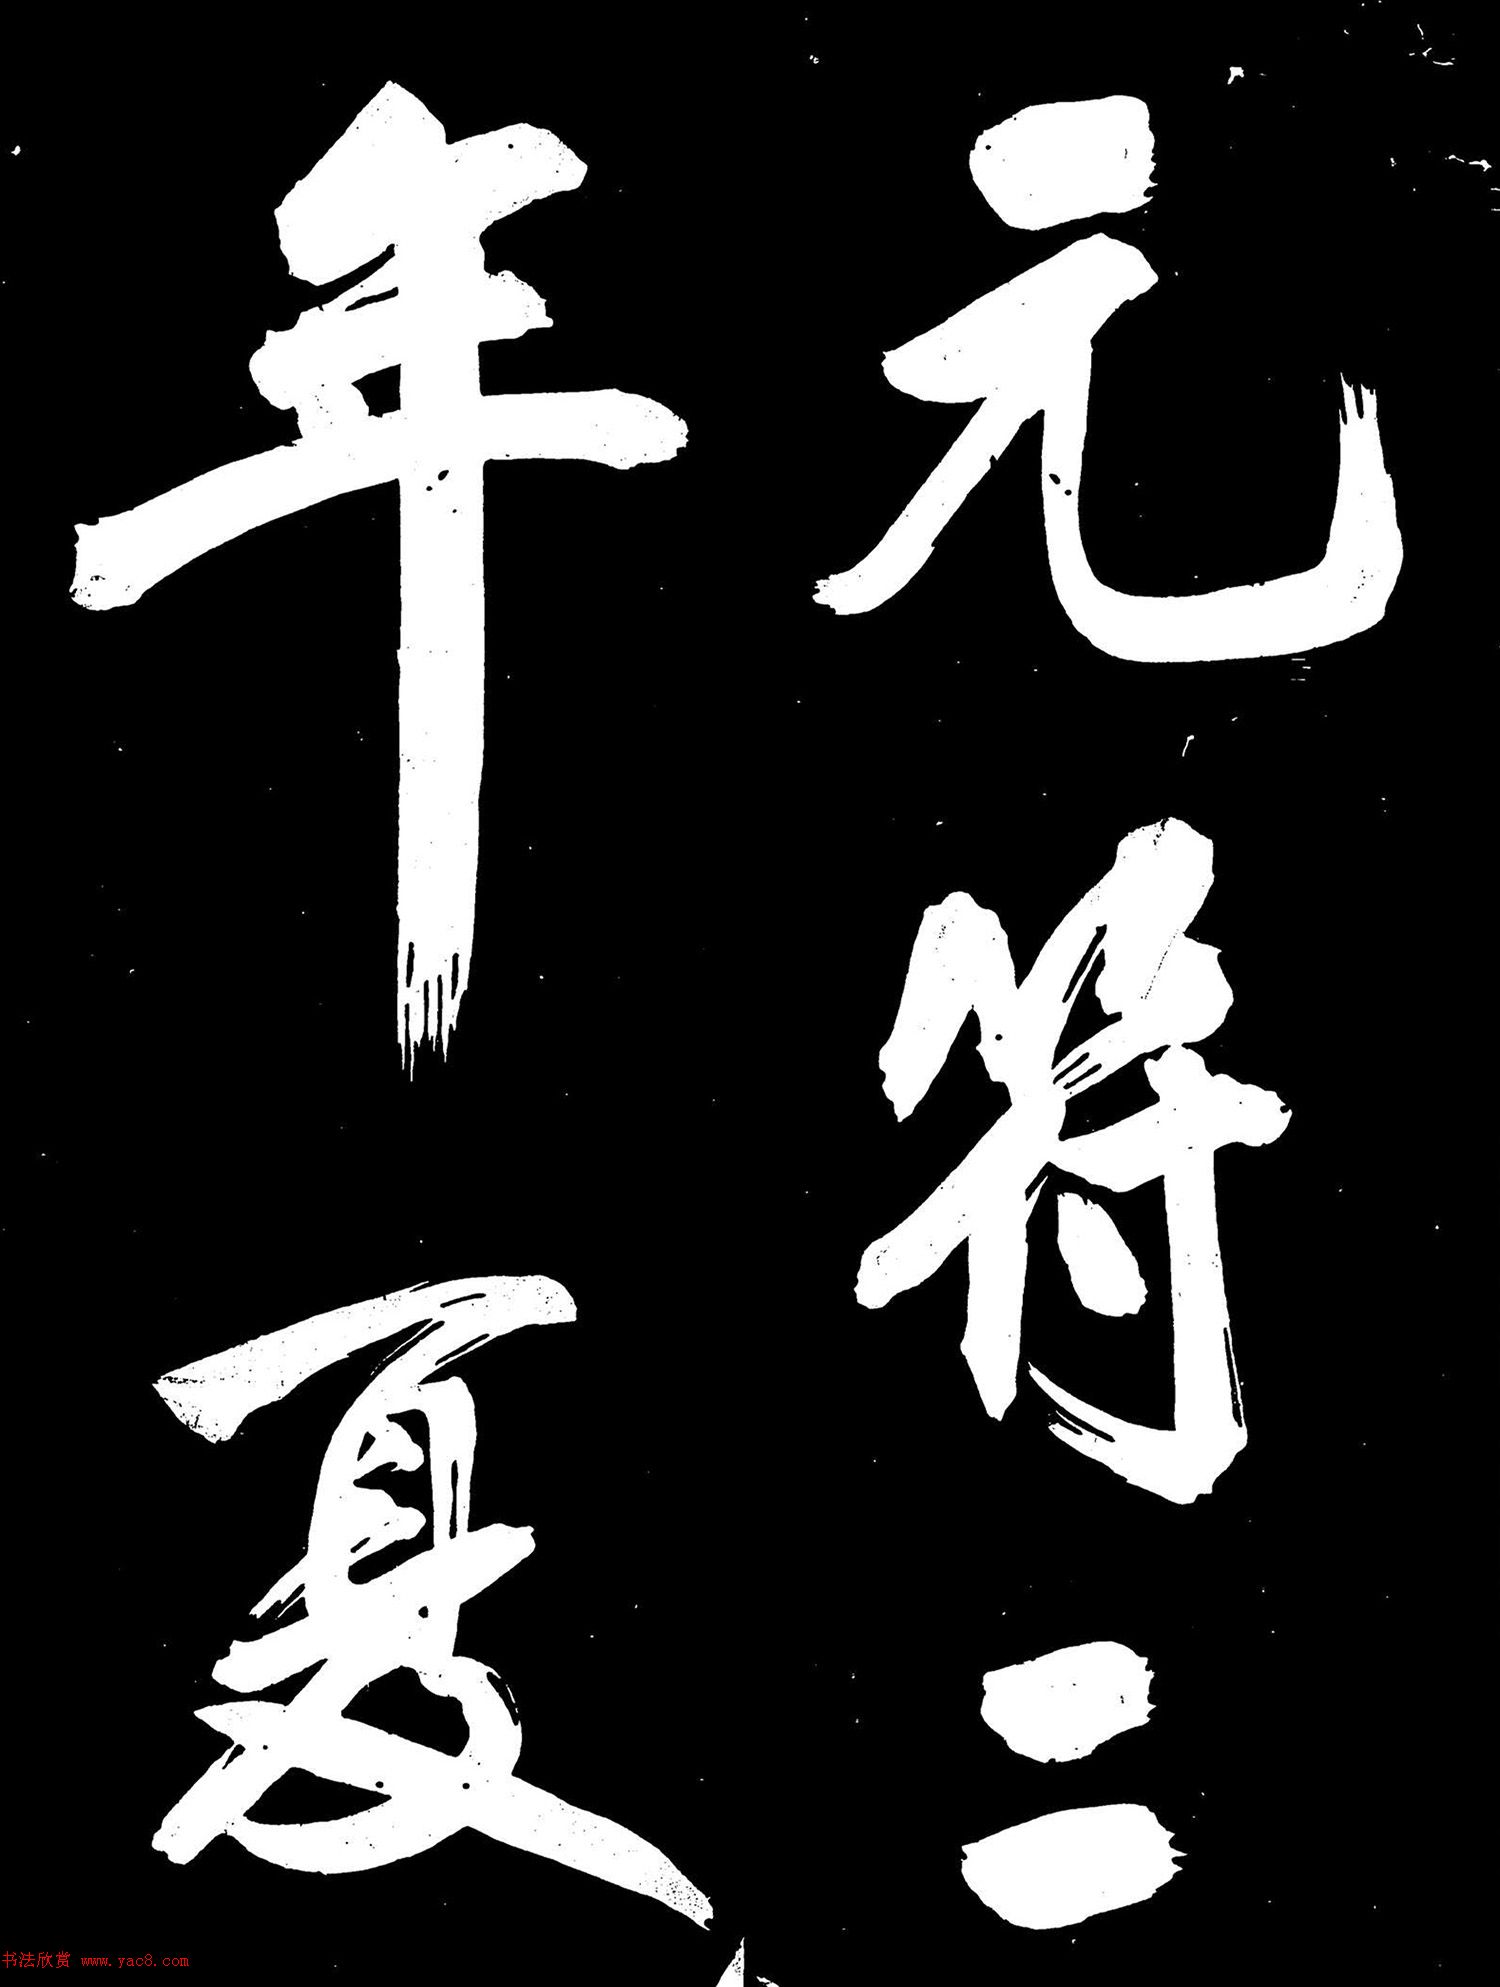 元符二
年夏
书法欣赏 www.yac8.com